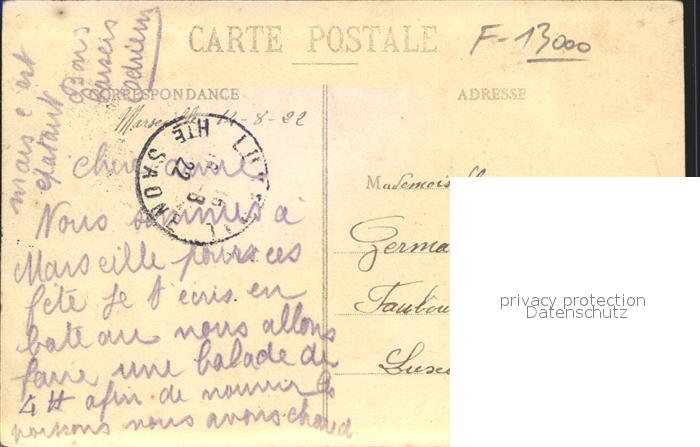 CARTE POSTALE
F-13000
CORRESPONDANCE
ADRESSE
Marseille 14-8-22
LUXEUIL
HTE SAONE
22
cher amie
Nous sommes à
Marseille pour ces
fête je t ecris en
bateau nous allons
faire une balade de
4H afin de nourrir les
poissons nous avons chaud
mais c est
épatant
Bons
Baisers
Adrien
Mademoiselle
Germa
Faubou
Luxe
privacy protection
Datenschutz